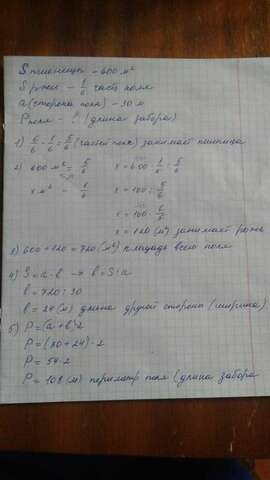 S пшеницы – 600 м²
S ржи – 1/6 часть поля
a (сторона поля) – 30 м
P поля – ? (длина забора)
1) 6/6 - 1/6 = 5/6 (частей поля) занимает пшеница
2) 600 м² – 5/6 x = 600 · 1/6 : 5/6
x м² – 1/6 x = 100 : 5/6
x = 100 · 6/5
x = 120 (м²) занимает рожь
3) 600 + 120 = 720 (м²) площадь всего поля
4) S = a · b → b = S : a
b = 720 : 30
b = 24 (м) длина другой стороны (ширина)
5) P = (a + b) 2
P = (30 + 24) · 2
P = 54 · 2
P = 108 (м) периметр поля (длина забора